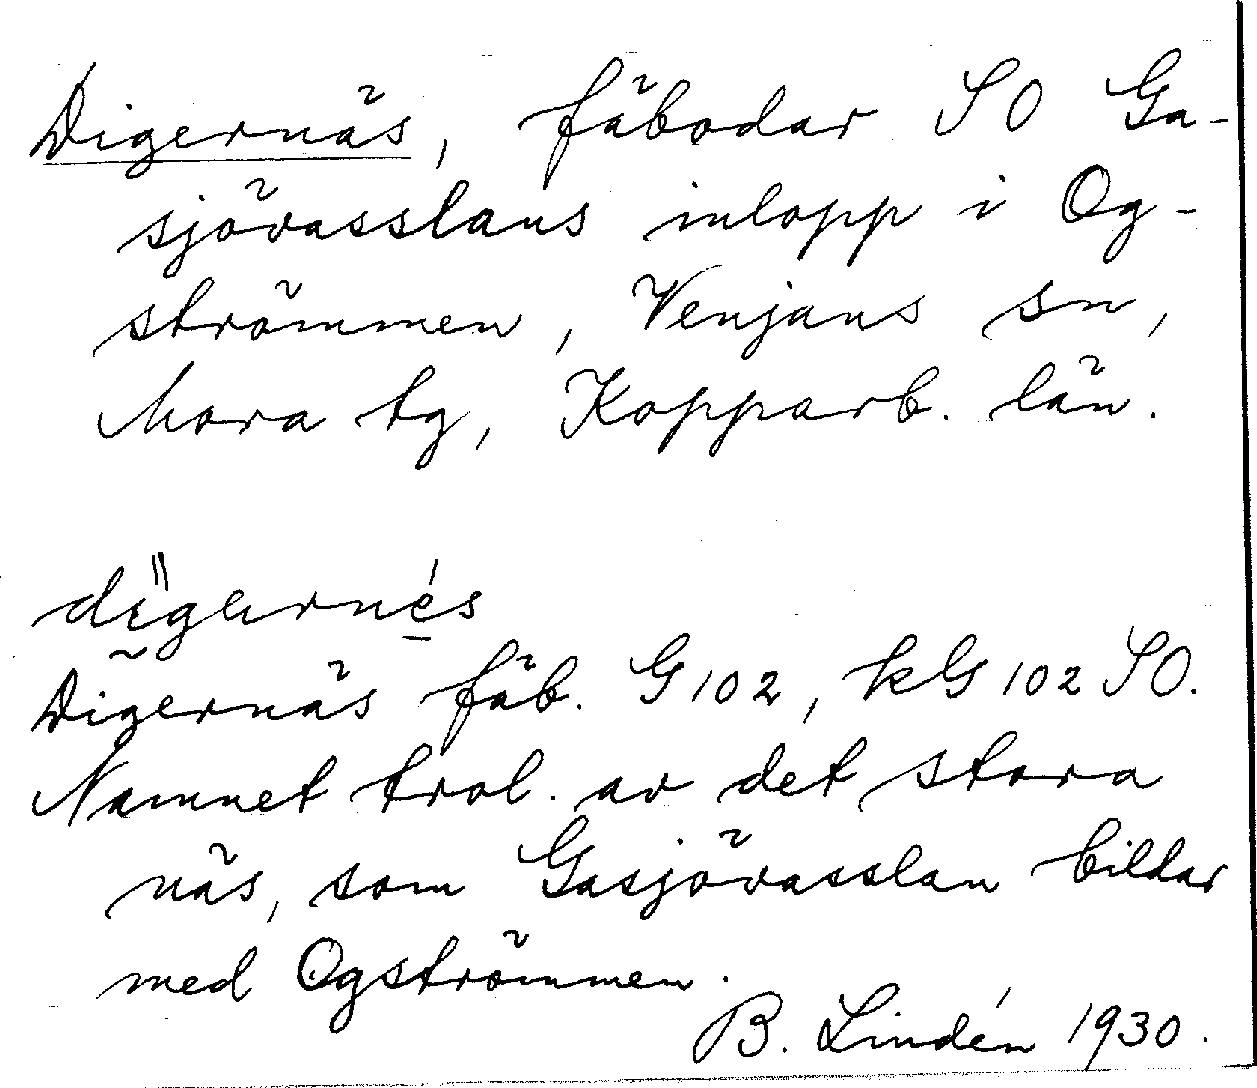 Digernäs, fäbodar SO Ga-
sjövasslans inlopp i Og-
strömmen, Venjans sn,
Mora tg, Kopparb. län.
Digernäs fäb. G 102, kG 102 SO.
Namnet trol. av det stora
näs, som Gasjövasslan bildar
med Ogströmmen.
B. Lindén 1930.